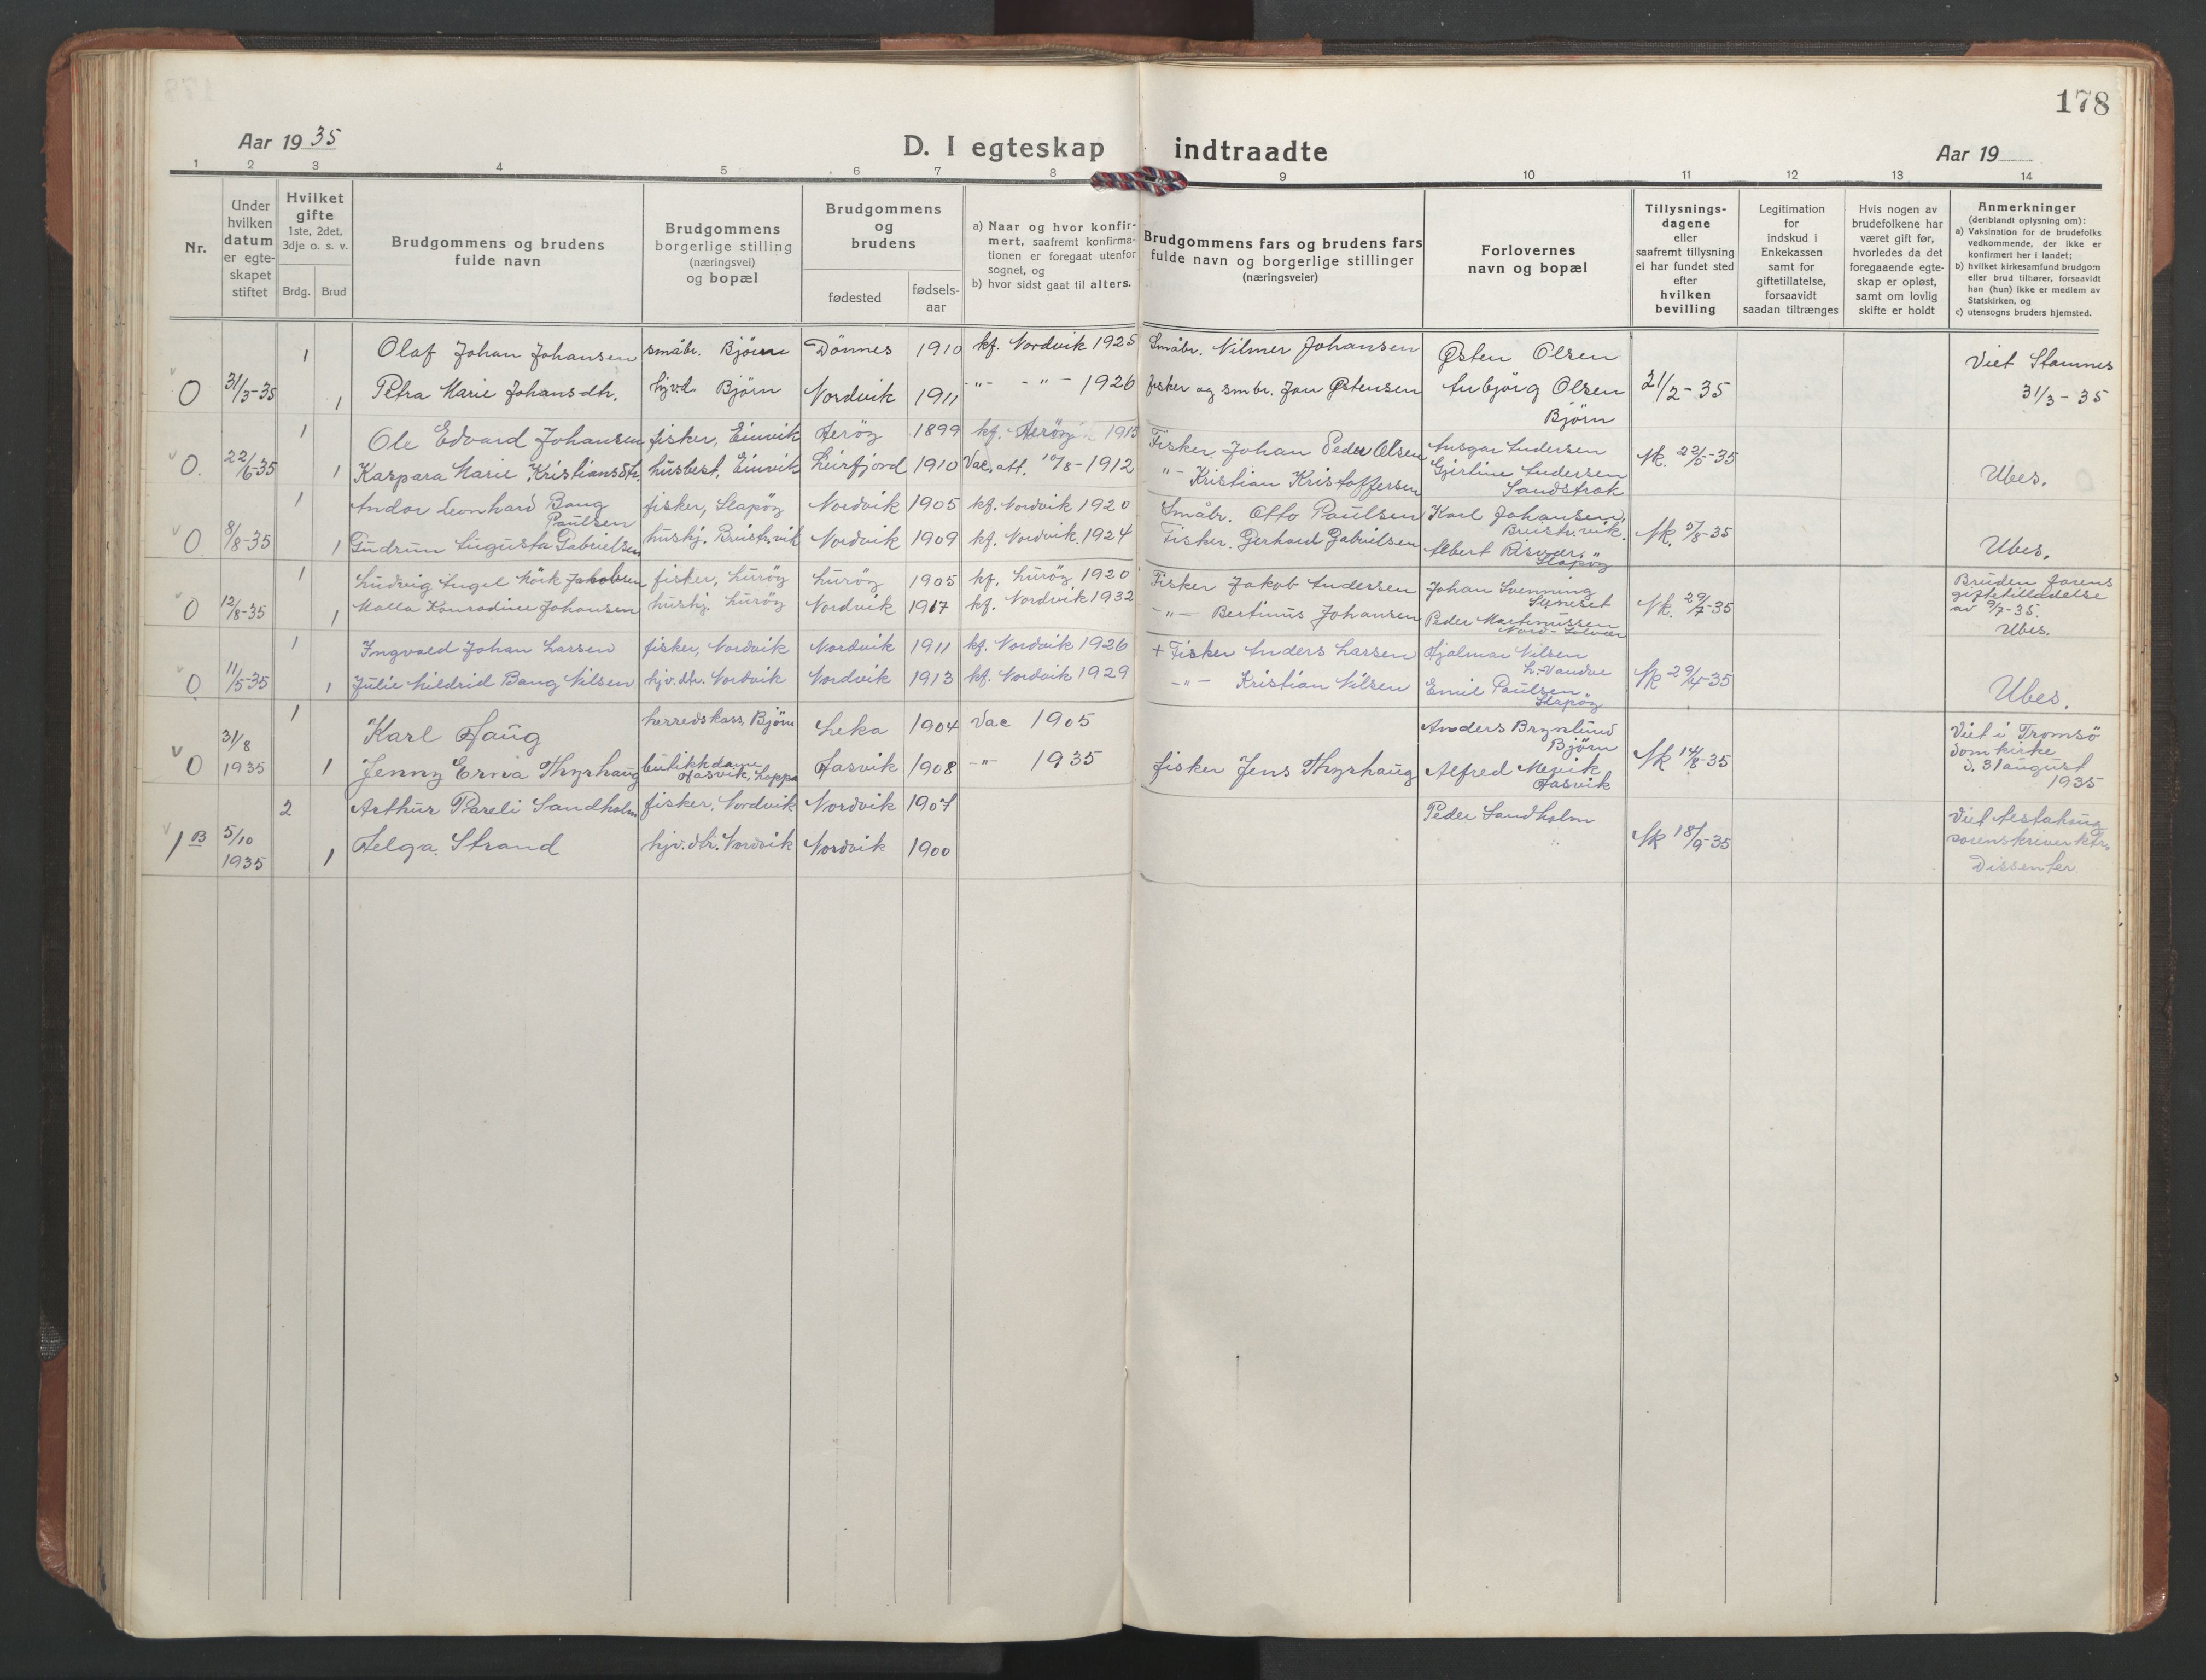 178
Aar 1935
D. I egteskap indtraadte
Aar 19
1 2 3 4 5 6 7 8 9 10 11 12 13 14
Nr.
Under hvilken datum er egteskapet stiftet
Hvilket gifte
1ste, 2det, 3dje o. s. v.
Brdg. Brud
Brudgommens og brudens fulde navn
Brudgommens borgerlige stilling (næringsvei) og bopæl
Brudgommens og brudens
fødested
fødselsaar
a) Naar og hvor konfirmert, saafremt konfirmationen er foregaat utenfor sognet, og
b) hvor sidst gaat til alters.
Brudgommens fars og brudens fars fulde navn og borgerlige stillinger (næringsveier)
Forlovernes navn og bopæl
Tillysningsdagene eller saafremt tillysning ei har fundet sted efter hvilken bevilling
Legitimation for indskud i Enkekassen samt for giftetillatelse, forsaavidt saadan tiltrænges
Hvis nogen av brudefolkene har været gift før, hvorledes da det foregaaende egteskap er opløst, samt om lovlig skifte er holdt
Anmerkninger
(deriblandt oplysning om):
a) Vaksination for de brudefolks vedkommende, der ikke er konfirmert her i landet;
b) hvilket kirkesamfund brudgom eller brud tilhører, forsaavidt han (hun) ikke er medlem av Statskirken, og
c) utensogns bruders hjemsted.
1 Olaf Johan Johansen småbr. Bjørn Dönnes 1910 kf. Nordvik 1925 Småbr. Hilmer Johansen Østen Olsen Viet Stamnes
0 31/3-35 1 Petra Marie Johansdh. hjvd. Bjørn Nordvik 1911 -"- -"- 1926 fisker og smbr. Jon Østensen Anbjørg Olsen 21/2-35 31/3-35
Bjørn
1 Ole Edvard Johansen fisker, Einvik Herøy 1899 kf. Herøy 1915 Fisker. Johan Peder Olsen Ansgar Andersen
0. 22/6-35 1 Kaspara Marie Kristiansdtr. husbest. Einvik Leirfjord 1910 Vac. att. 10/8-1912 "- Kristian Kristoffersen Gjertine Andersen Nk. 22/5-35 Ubes.
Sandstrak
1 Andor Leonhard Bang Paulsen fisker, Slapøy Nordvik 1905 kf. Nordvik 1920 Småbr. Otto Paulsen Karl Johansen,
Breistr.vik.
0 8/8-35 1 Gudrun Augusta Gabrielsen hushj. Breistr.vik Nordvik 1909 kf. Nordvik. 1924 Fisker. Gerhard Gabrielsen Albert Risvær, Nk. 5/8-35 Ubes.
Slapøy
1 Ludvig Angel Mörk Jakobsen fisker, Lurøy Lurøy 1905 kf. Lurøy 1920 Fisker Jakob Andersen Johan Svenning Bruden farens
giftetilladelse
0 12/8-35 1 Malla Konradine Johansen hushj. Lurøy Nordvik 1917 kf. Nordvik 1932 -"- Bertinus Johansen Peder Martinussen Nk. 29/7-35 av 9/7-35.
Nord-Solvær Ubes.
1 Ingvald Johan Larsen fisker, Nordvik Nordvik 1911 kf. Nordvik 1926 + Fisker Anders Larsen Hjalmar Nilsen
0 11/5-35 1 Julie Mildrid Bang Nilsen hjv.dtr. Nordvik Nordvik 1913 kf. Nordvik 1929 -"- Kristian Nilsen Emil Paulsen Nk 29/4-35 Ubes.
Slapøy
1 Karl Haug herredskass. Bjørn Leka 1904 Vac 1905 Anders Brynlund Viet i Tromsö
Bjørn domkirke
0 31/8 1935 1 Jenny Erna Thyrhaug butikkdame Hasvik, Loppa Hasvik 1908 -"- 1935 fisker Jens Thyrhaug Alfred Mevik Nk 14/8-35 d. 31 august
Hasvik 1935
2 Arthur Pareli Sandholm fisker, Nordvik Nordvik 1907 Peder Sandholm Viet Alstahaug
1B 5/10 1935 1 Helga Strand hjv.dtr. Nordvik Nordvik 1900 Nk 18/9-35 sorenskriverktr.
Dissenter